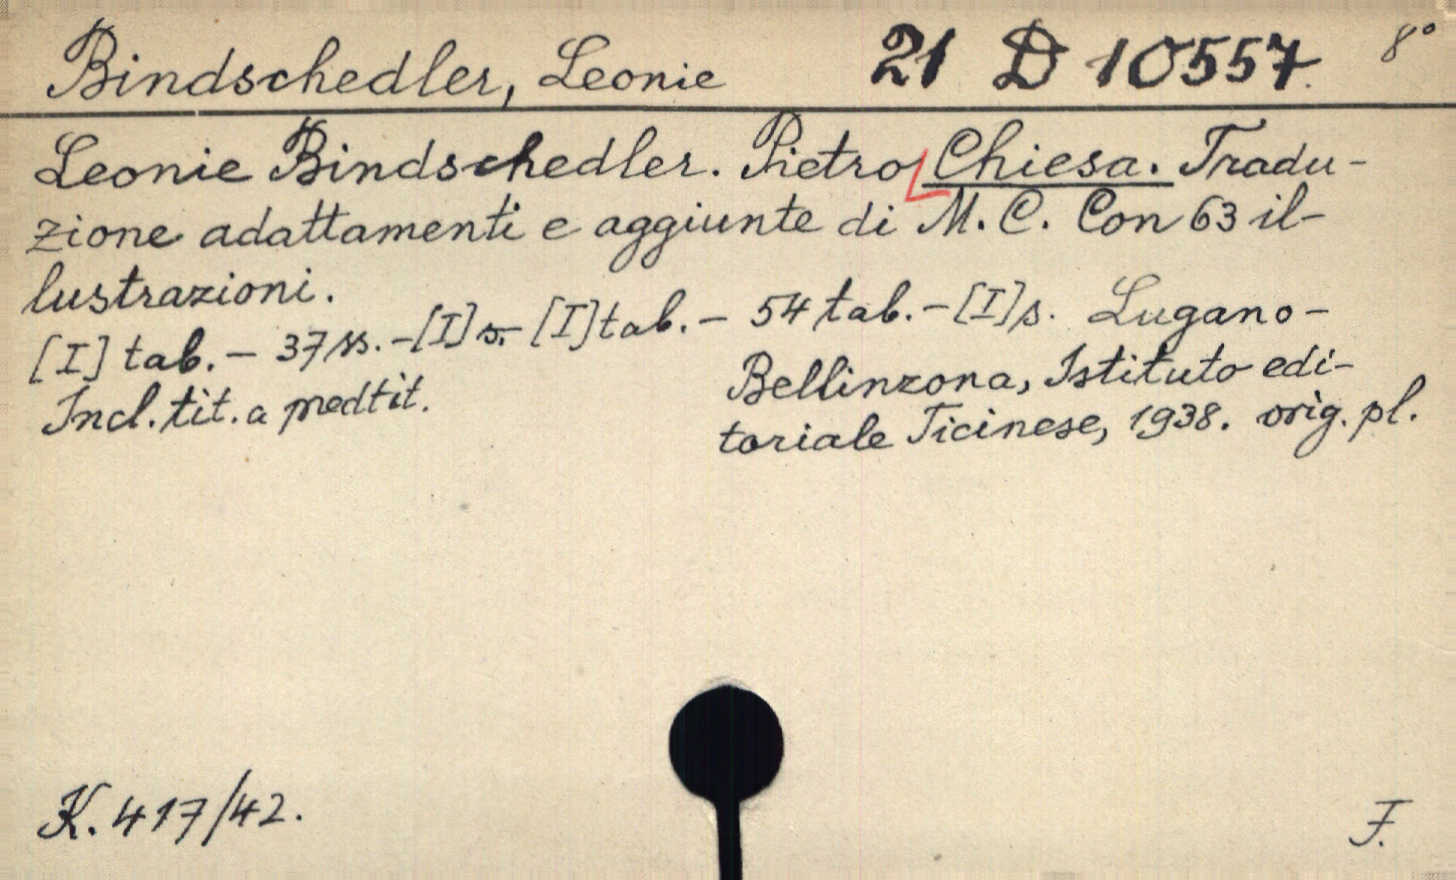 Bindschedler, Leonie 21 D 10557. 8°
Leonie Bindschedler. Pietro Chiesa. Tradu-
zione adattamenti e aggiunte di M. C. Con 63 il-
lustrazioni.
[I] tab. – 37 ss. – [I] s. – [I] tab. – 54 tab. – [I] s. Lugano-
Bellinzona, Istituto edi-
Incl. tit. a predtit.
toriale Ticinese, 1938. orig. pl.
K. 417/42. F.